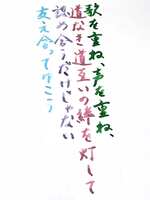 歌を重ね、声を重ね、
道なき道互いの絆を灯して
認め合うだけじゃない
支え合って行こう